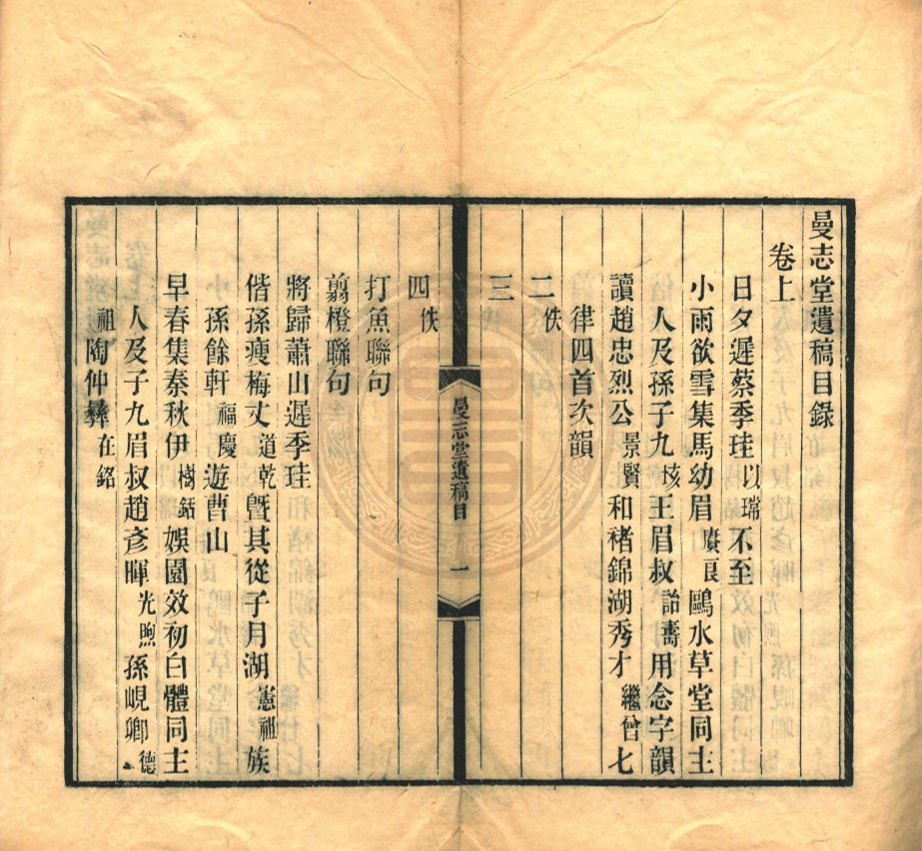 曼志堂遺稿目錄
卷上
日夕遲蔡季珪以瑺不至
小雨欲雪集馬幼眉賡良鷗水草堂同主
人及孫子九垓王眉叔詒壽用念字韻
讀趙忠烈公景賢和褚錦湖秀才繼曾七
律四首次韻
二佚
三
曼志堂遺稿目
一
四佚
打魚聯句
翦橙聯句
將歸蕭山遲季珪
偕孫瘦梅丈道乾暨其從子月湖憲祖族
孫餘軒福慶遊曹山
早春集秦秋伊樹銛娛園效初白體同主
人及子九眉叔趙彥暉光煦孫峴卿德
祖陶仲彝在銘